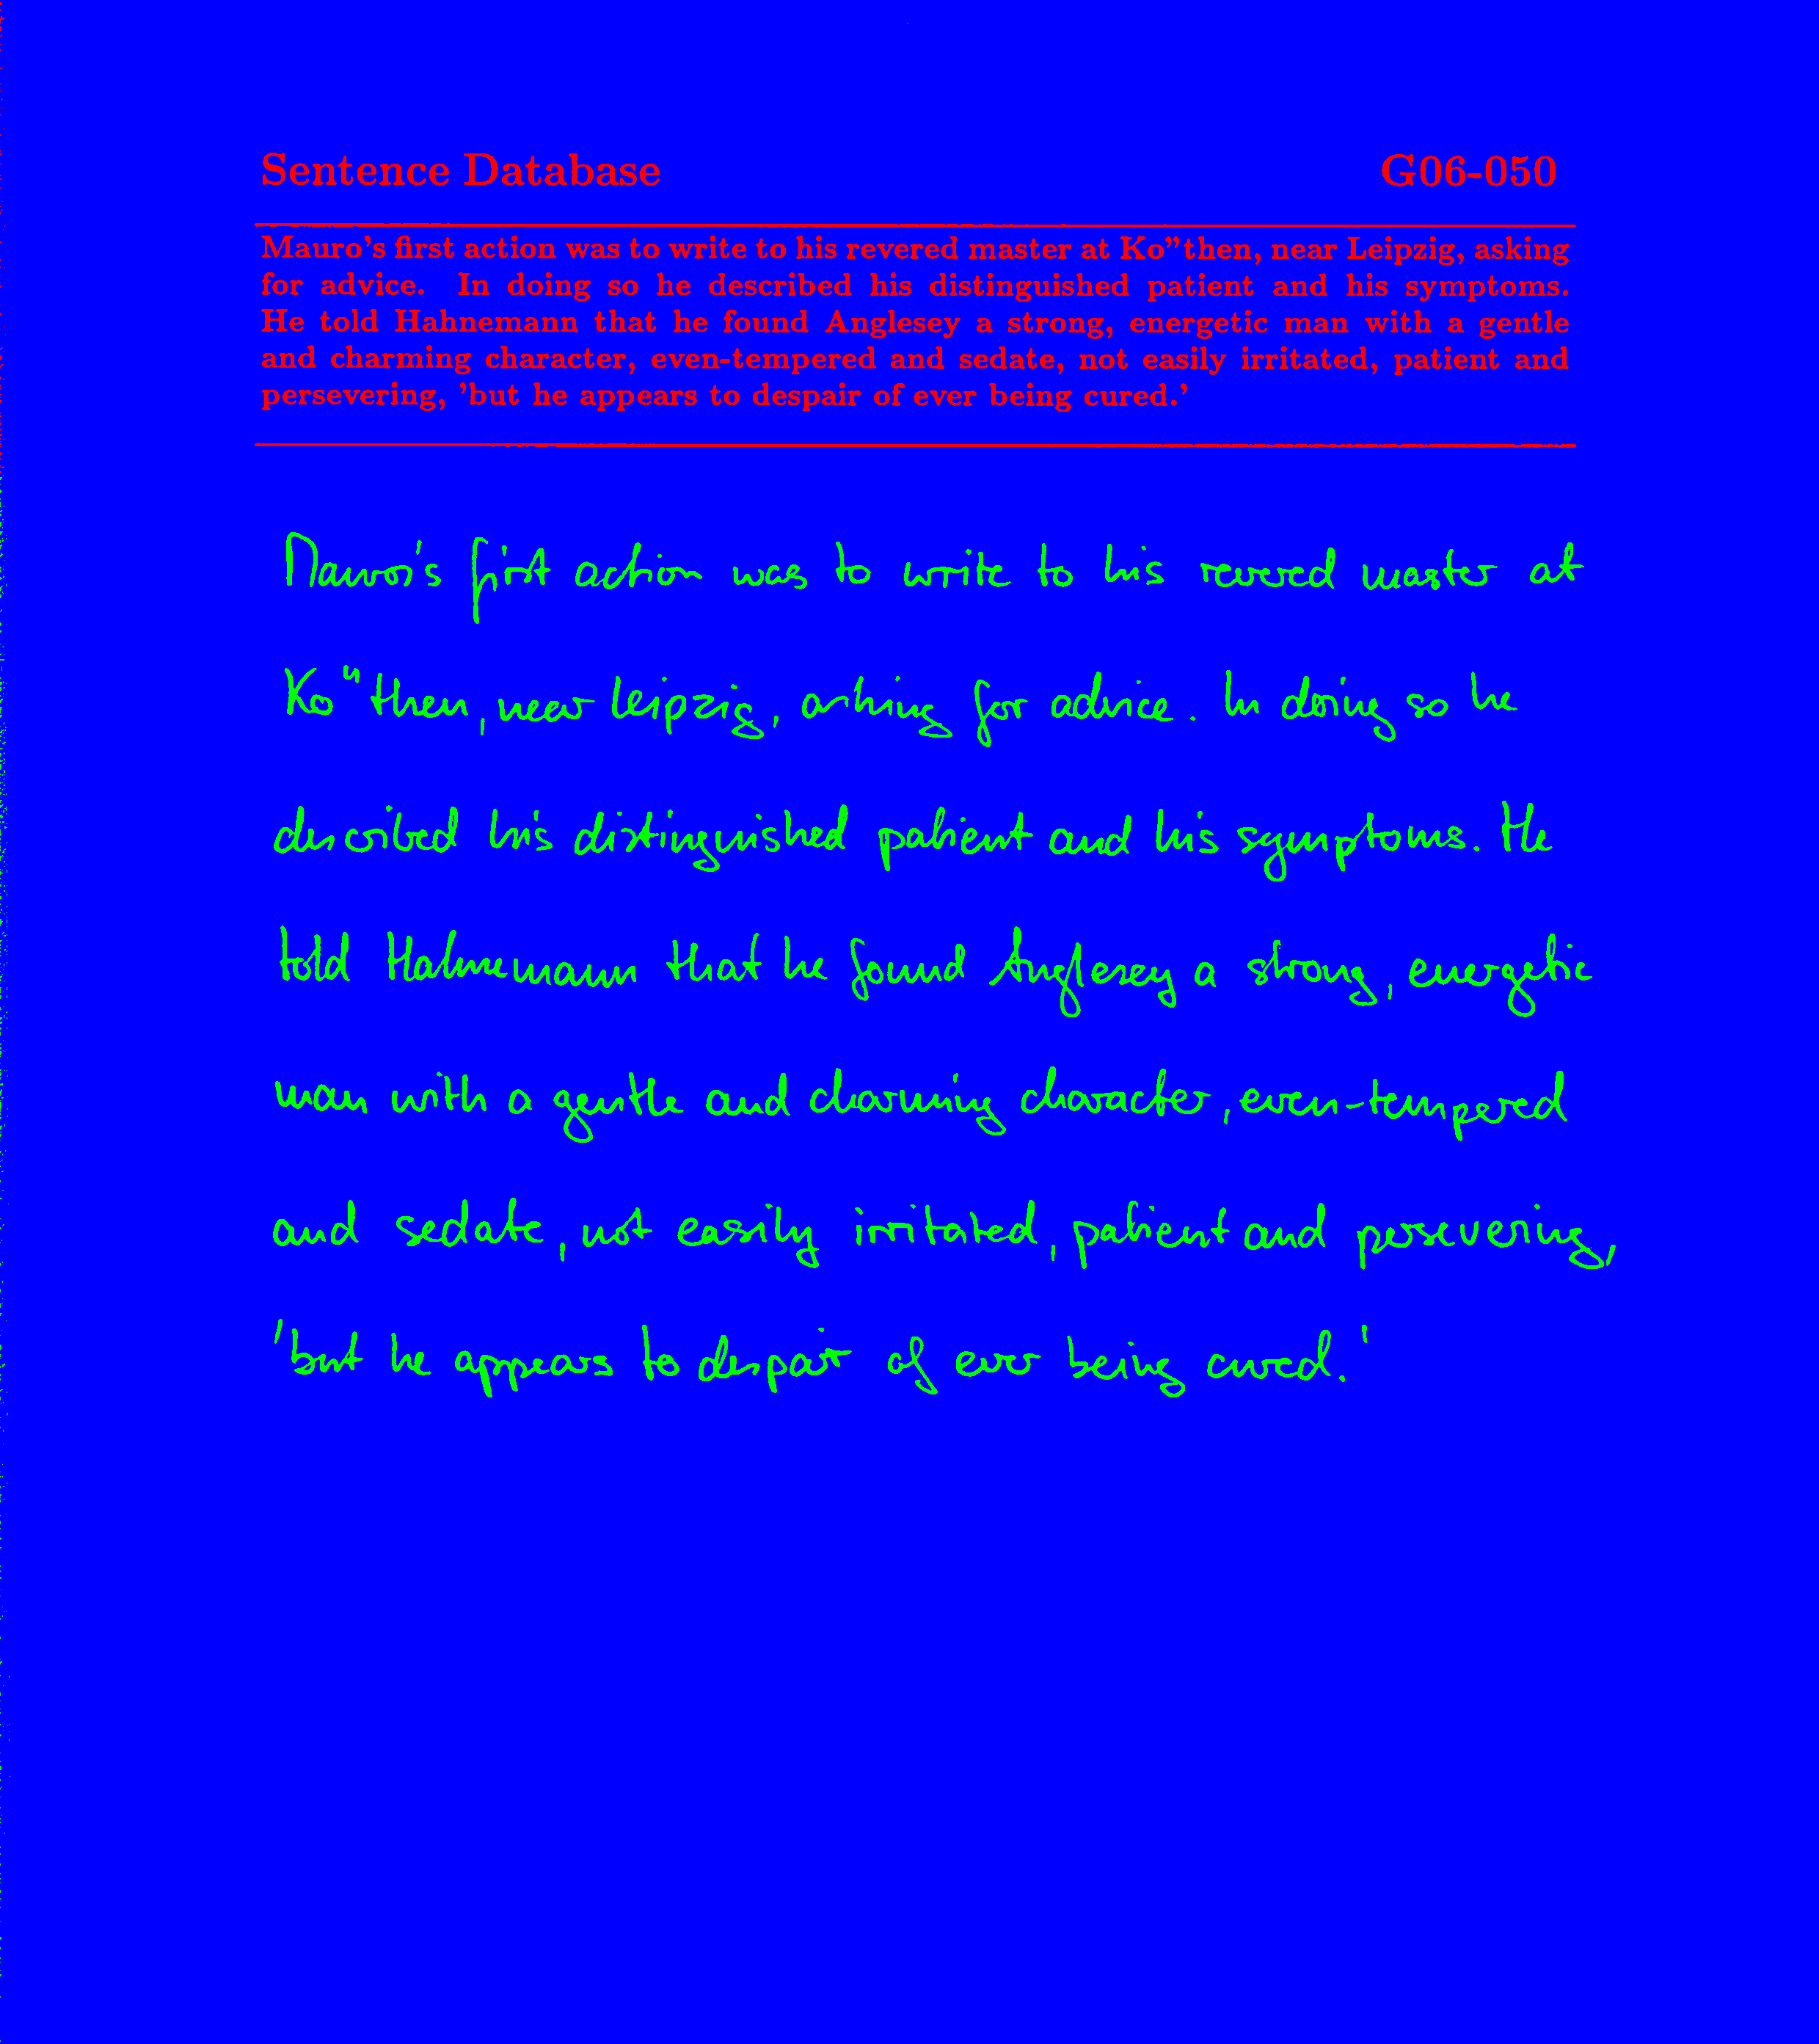 Sentence Database G06-050
Mauro's first action was to write to his revered master at Ko"then, near Leipzig, asking
for advice. In doing so he described his distinguished patient and his symptoms.
He told Hahnemann that he found Anglesey a strong, energetic man with a gentle
and charming character, even-tempered and sedate, not easily irritated, patient and
persevering, 'but he appears to despair of ever being cured.'
Mauro's first action was to write to his revered master at
Ko"then, near Leipzig, asking for advice. In doing so he
described his distinguished patient and his symptoms. He
told Hahnemann that he found Anglesey a strong, energetic
man with a gentle and charming character, even-tempered
and sedate, not easily irritated, patient and persevering,
'but he appears to despair of ever being cured.'